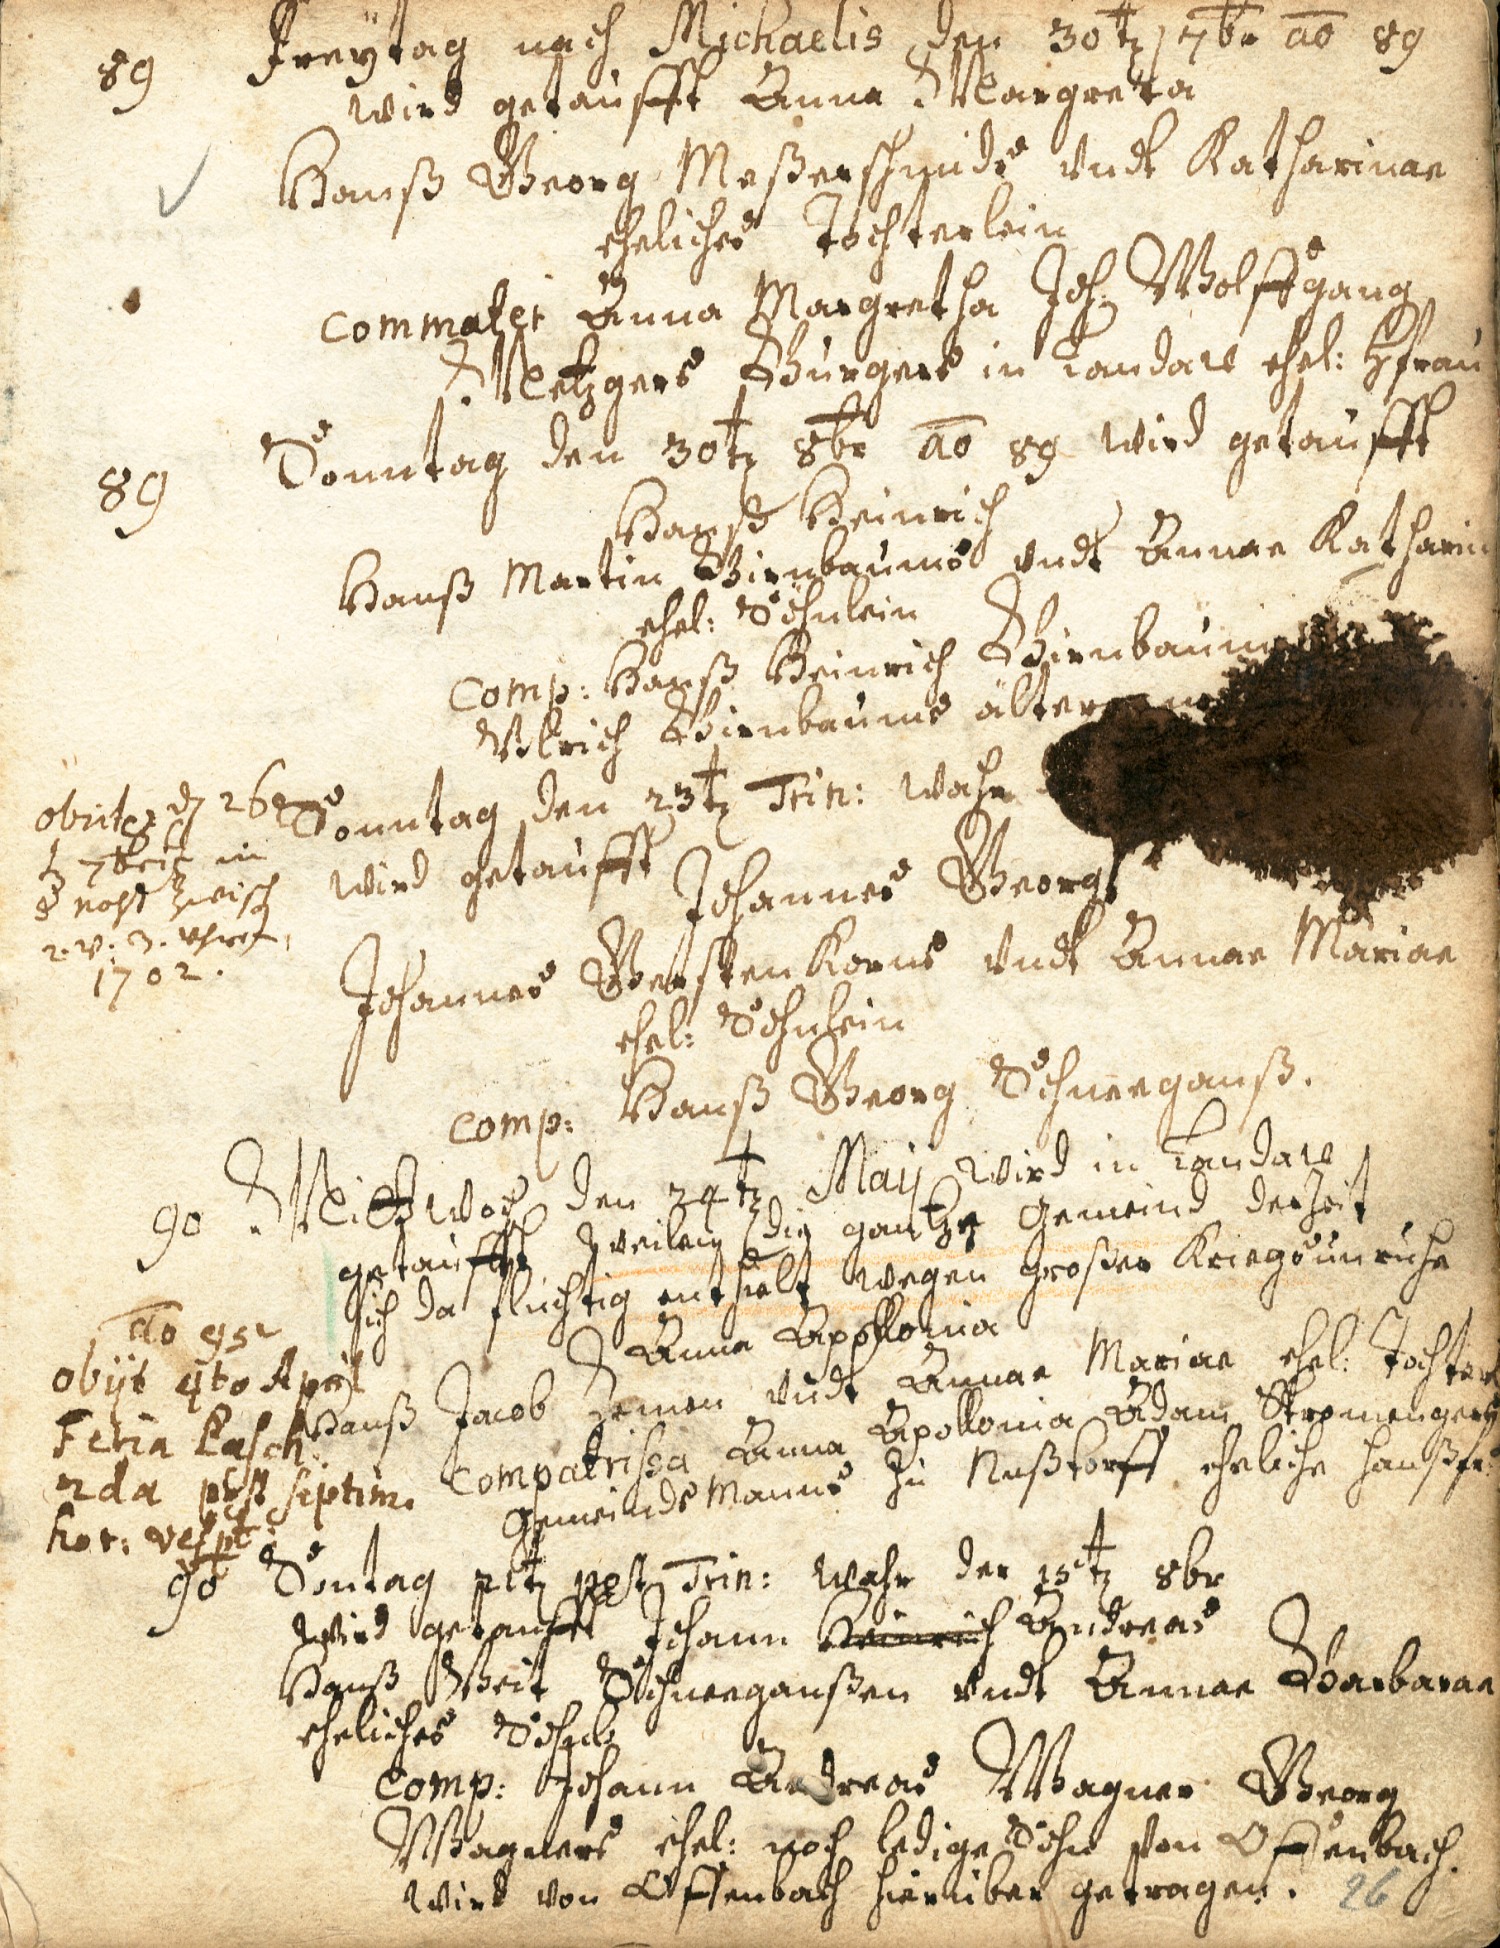 89 Freÿtag nach Michaelis den 30t 7br ao 89
wird getaufft Anna Margreta
Hanß Georg Meßerschmids vndt Katharinae
eheliches Töchterlein
Commater Anna Margretha Joh. Wolffgang
Metzgers Burgers in Landaw ehel: Hfrau
89 Sonntag den 30t 8br ao 89 wird getaufft
Hanß Heinrich
Hanß Martin Birnbaums vndt Annae Katharin
ehel: Söhnlein
Comp: Hanß Heinrich Birnbaum
Vlrich Birnbaums älter
Sonntag den 23t Trin: wahr
wird getaufft
Johannes Georg
obiit d 26
7bris in
nocht zwisch
2. v. 3. vhren
1702.
Johannes Gerstenkorns vndt Annae Mariae
ehel: Söhnlein
Comp: Hanß Georg Schneeganß.
90 Mittwoch den 24t Maÿ wird in Landaw
getaufft weilen die gantze Gemeind derzeit
sich da flüchtig enthielt wegen großer Kriegsunruhe
Anna Apollonia
Hanß Jacob vndt Annae Mariae ehel: Tochter
Compatrissa Anna Apollonia Adam Stromengers
Gemeindsmanns zu Nußtorff eheliche Haußfr:
ao 95
obijt 4to April
Feria Pasch:
2da post septim.
hor: vespt:
90 Sontag 21t post Trin: wahr der 15t 8br
wird getaufft Johann Heinrich Andreas
Hanß Veit Schneeganßen vndt Annae Barbarae
eheliches Söhnl
Comp: Johann Andreas Wagner Georg
Wagners ehel: noch ledige Sohn von Offenbach.
wird von Offenbach hierüber getragen. 26